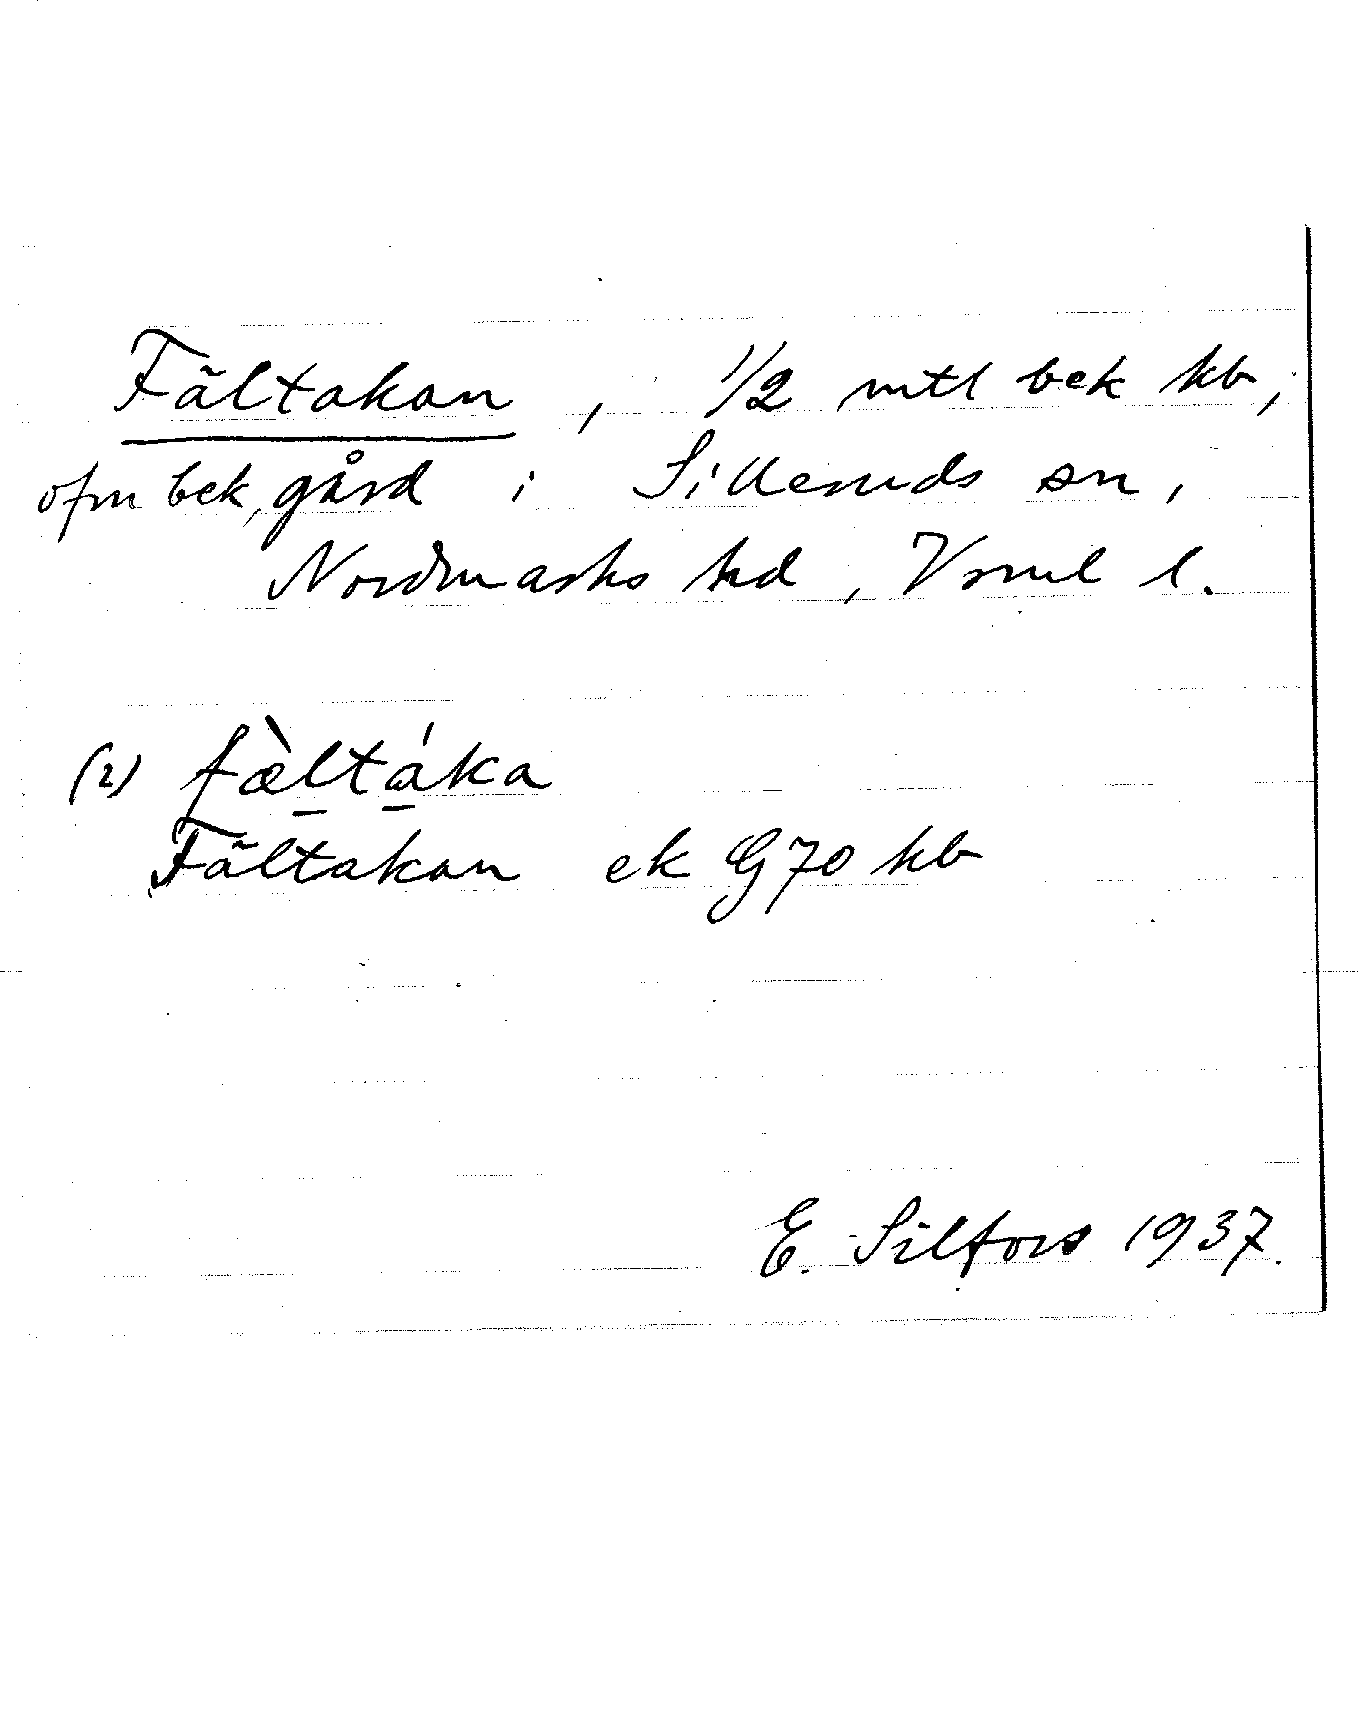 Fältakan, 1/2 mtl bek kb,
ofm bek, gård i Silleruds sn,
Nordmarks hd, Vrml l.
(2) fæ̀ltáka
Fältakan ek G70 kb
E. Silfors 1937.